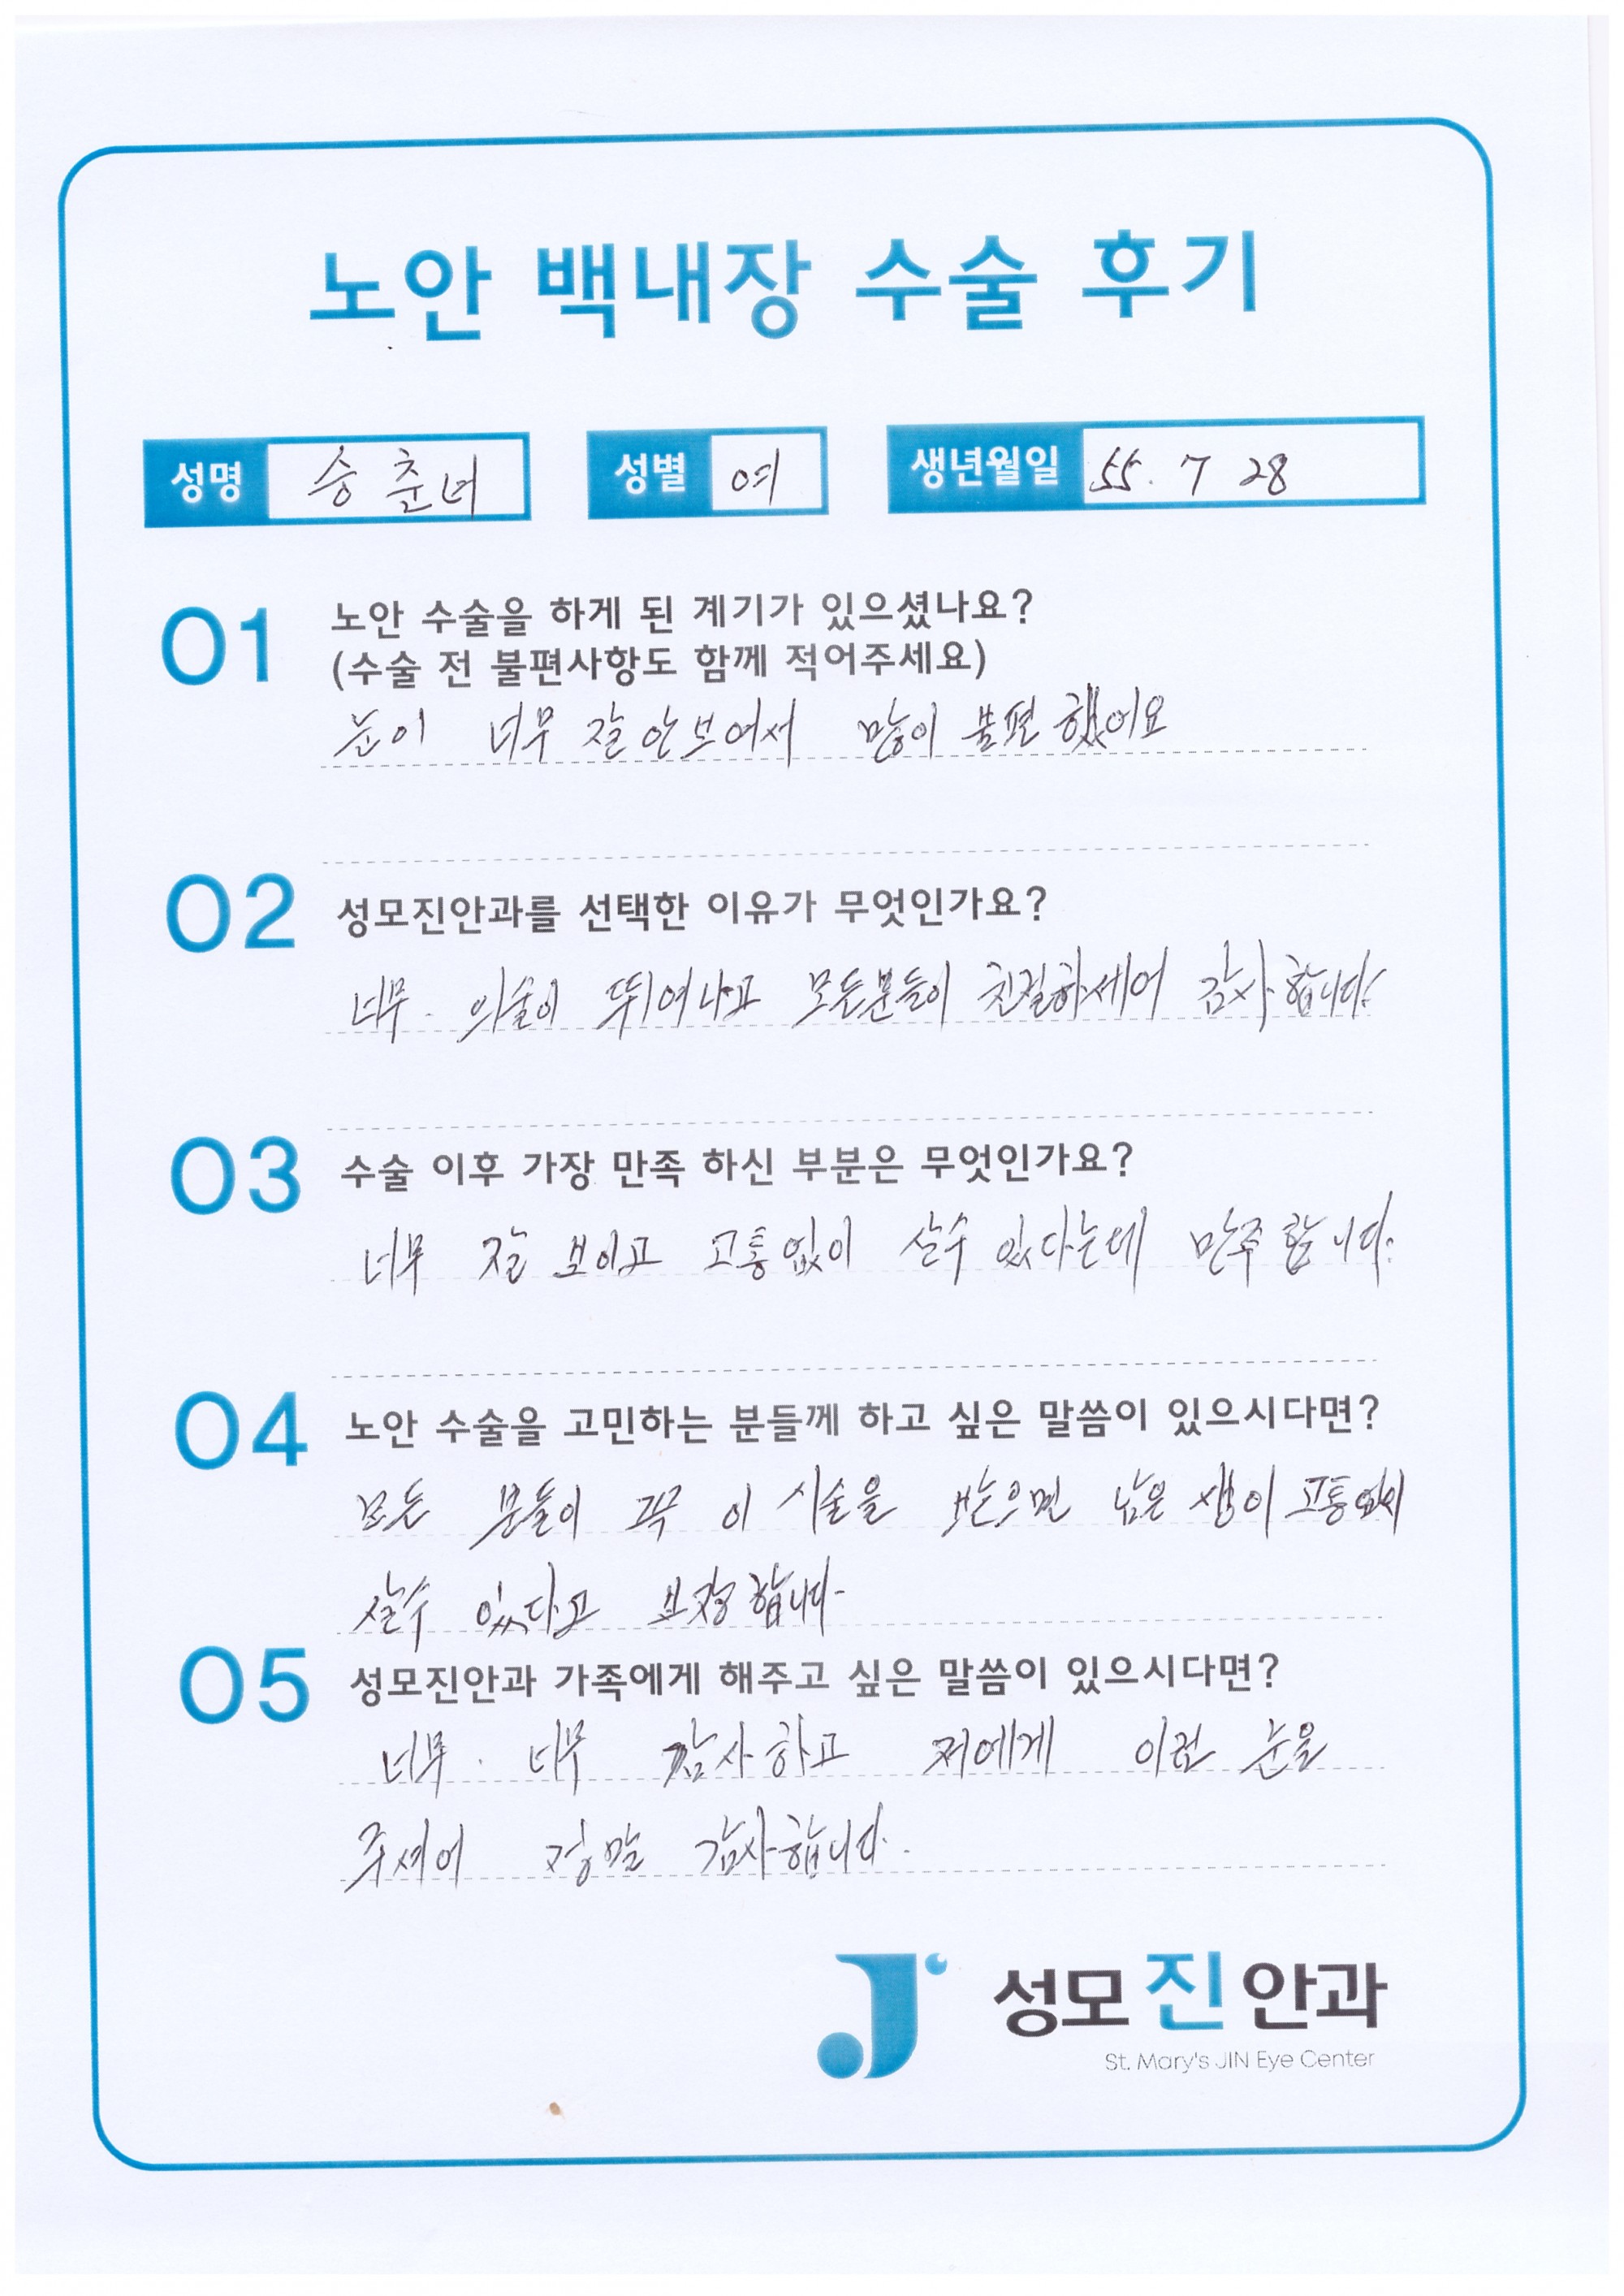 노안 백내장 수술 후기
성명 송춘녀 성별 여 생년월일 55. 7 28
01 노안 수술을 하게 된 계기가 있으셨나요?
(수술 전 불편사항도 함께 적어주세요)
눈이 너무 잘 안보여서 많이 불편 했어요
02 성모진안과를 선택한 이유가 무엇인가요?
너무. 의술이 뛰여나고 모든분들이 친절하세어 감사합니다.
03 수술 이후 가장 만족 하신 부분은 무엇인가요?
너무 잘 보이고 고통없이 살수 있다는데 만족합니다.
04 노안 수술을 고민하는 분들께 하고 싶은 말씀이 있으시다면?
모든 분들이 꼭 이 시술을 받으면 남은 생이 고통없이
살수 있다고 보장합니다-
05 성모진안과 가족에게 해주고 싶은 말씀이 있으시다면?
너무. 너무 감사하고 저에게 이런 눈을
주셔어 정말 감사합니다.
성모진안과
St. Mary's JIN Eye Center